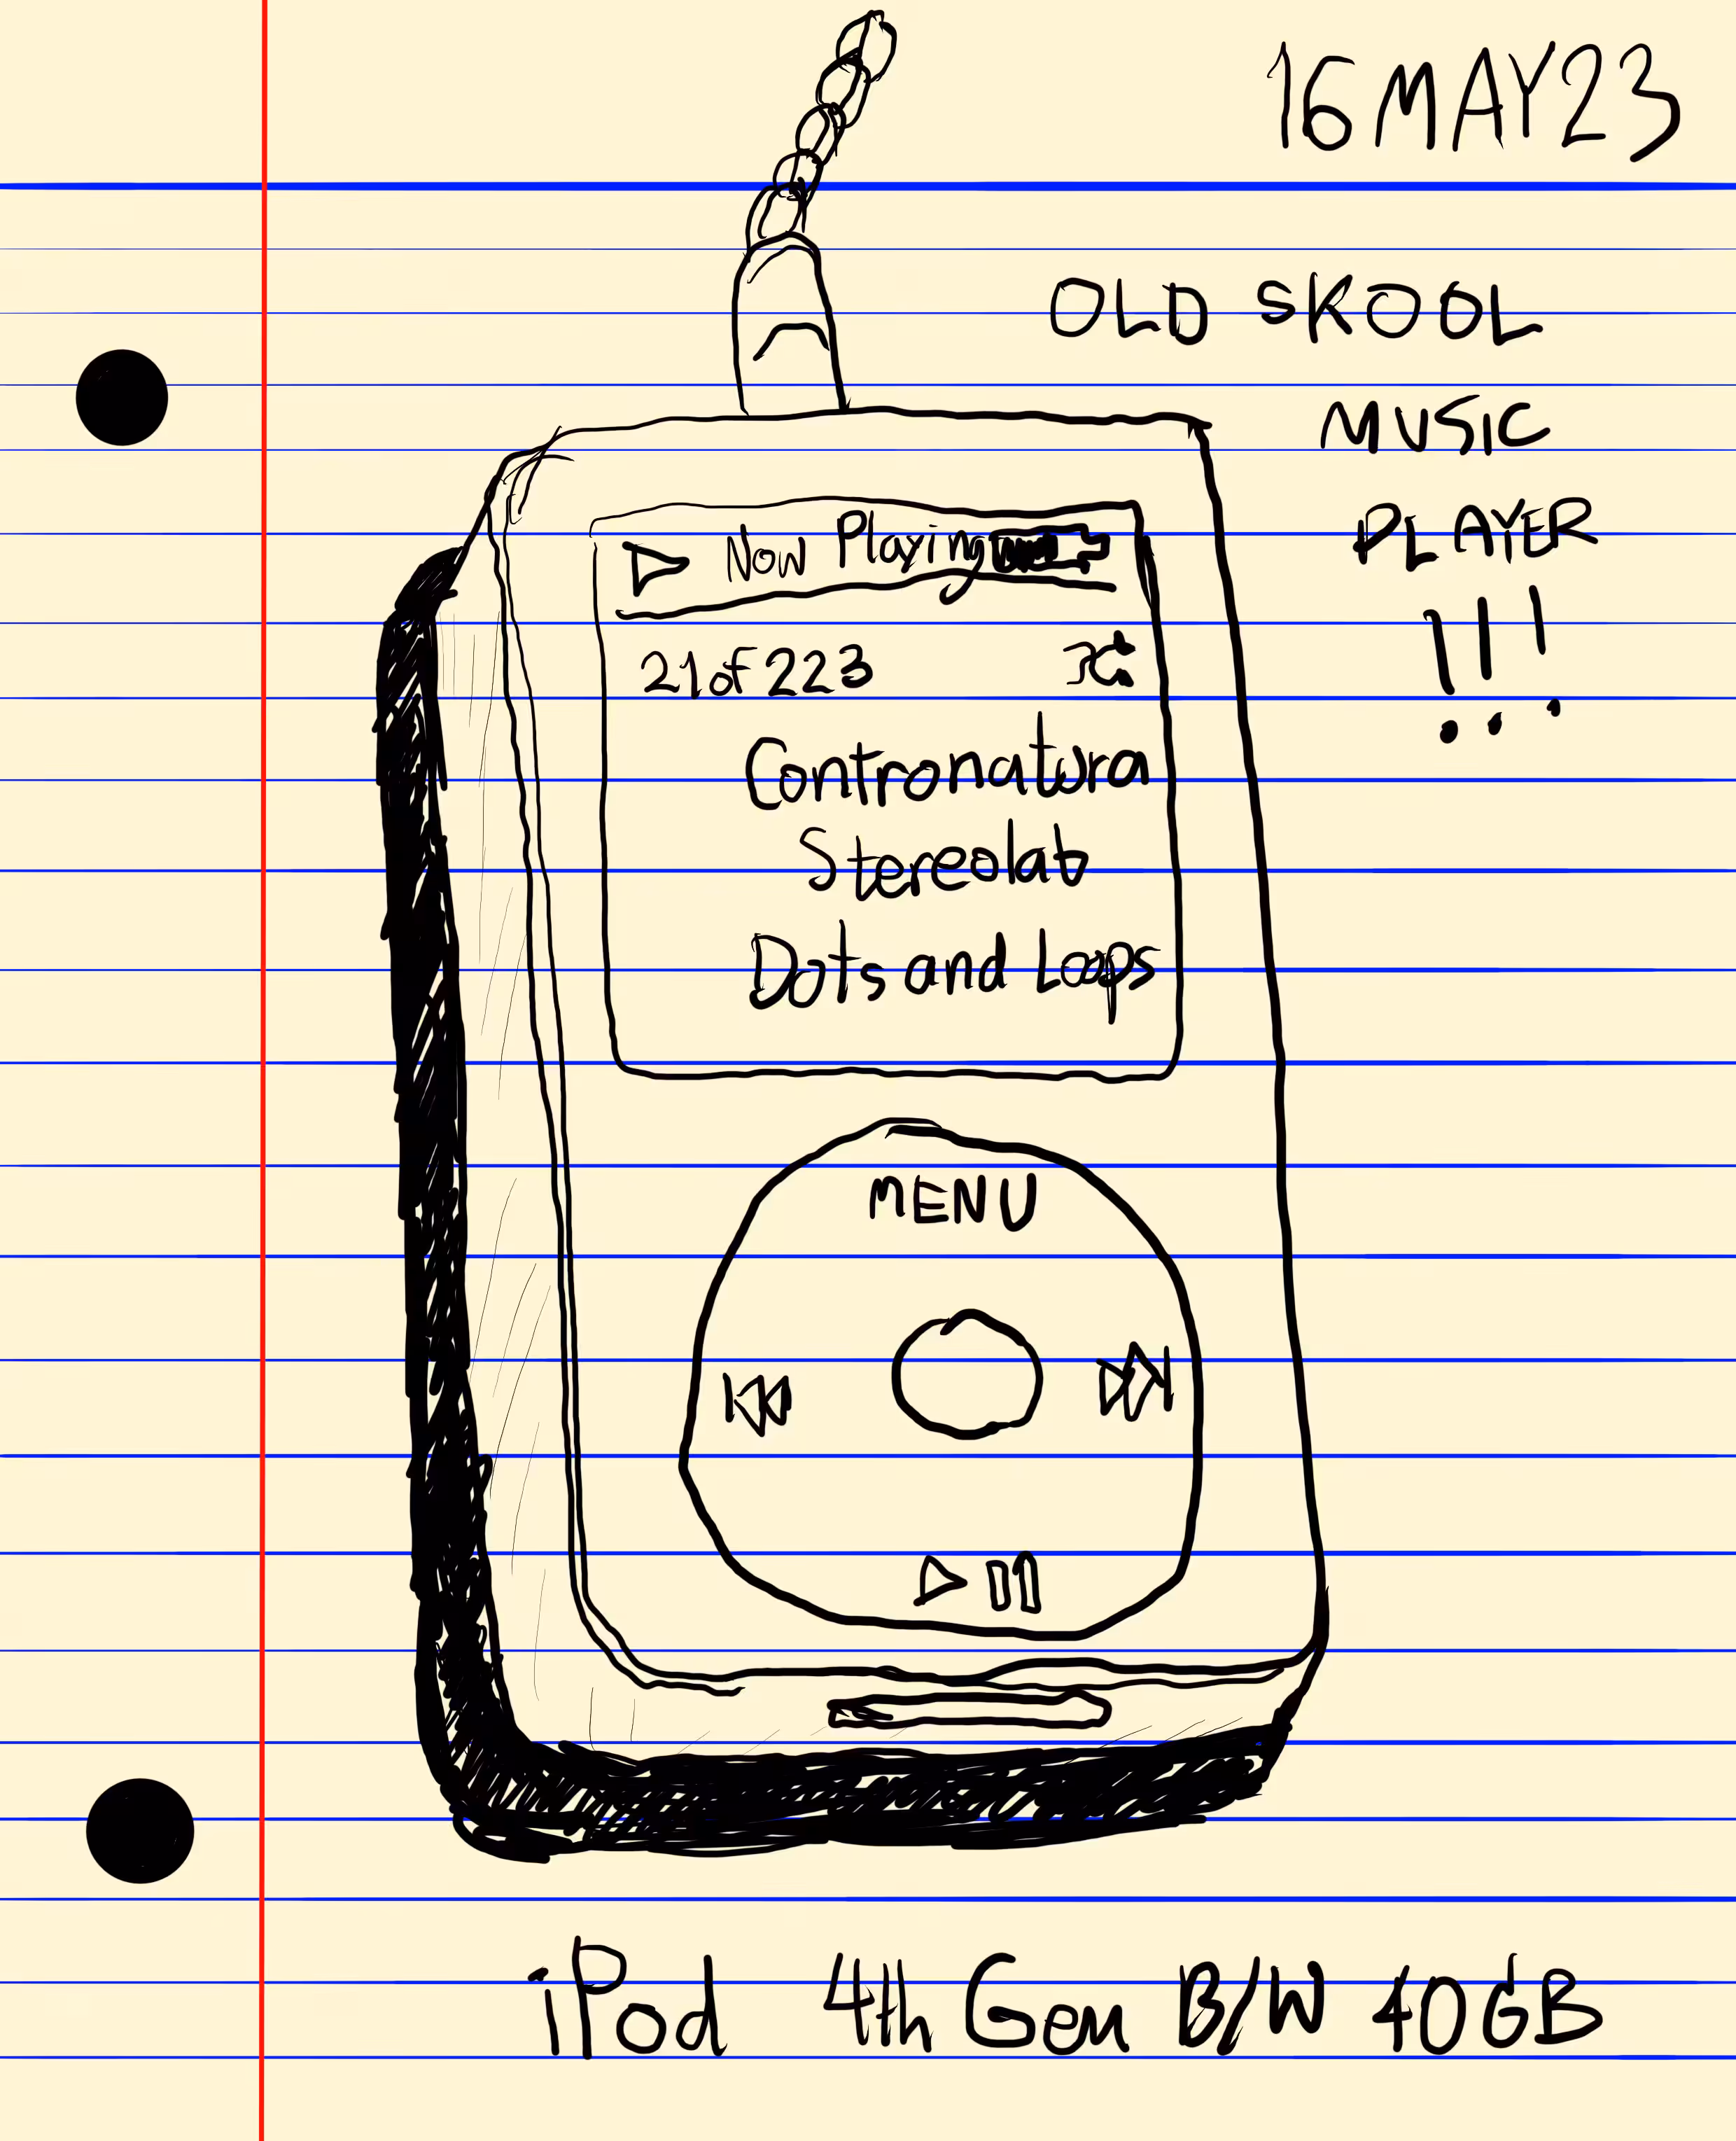 16MAY23
OLD SKOOL
MUSIC
PLAYER
!!!
Now Playing
21 of 223
Contronatura
Stereolab
Dots and Loops
MENU
iPod 4th Gen B/W 40GB